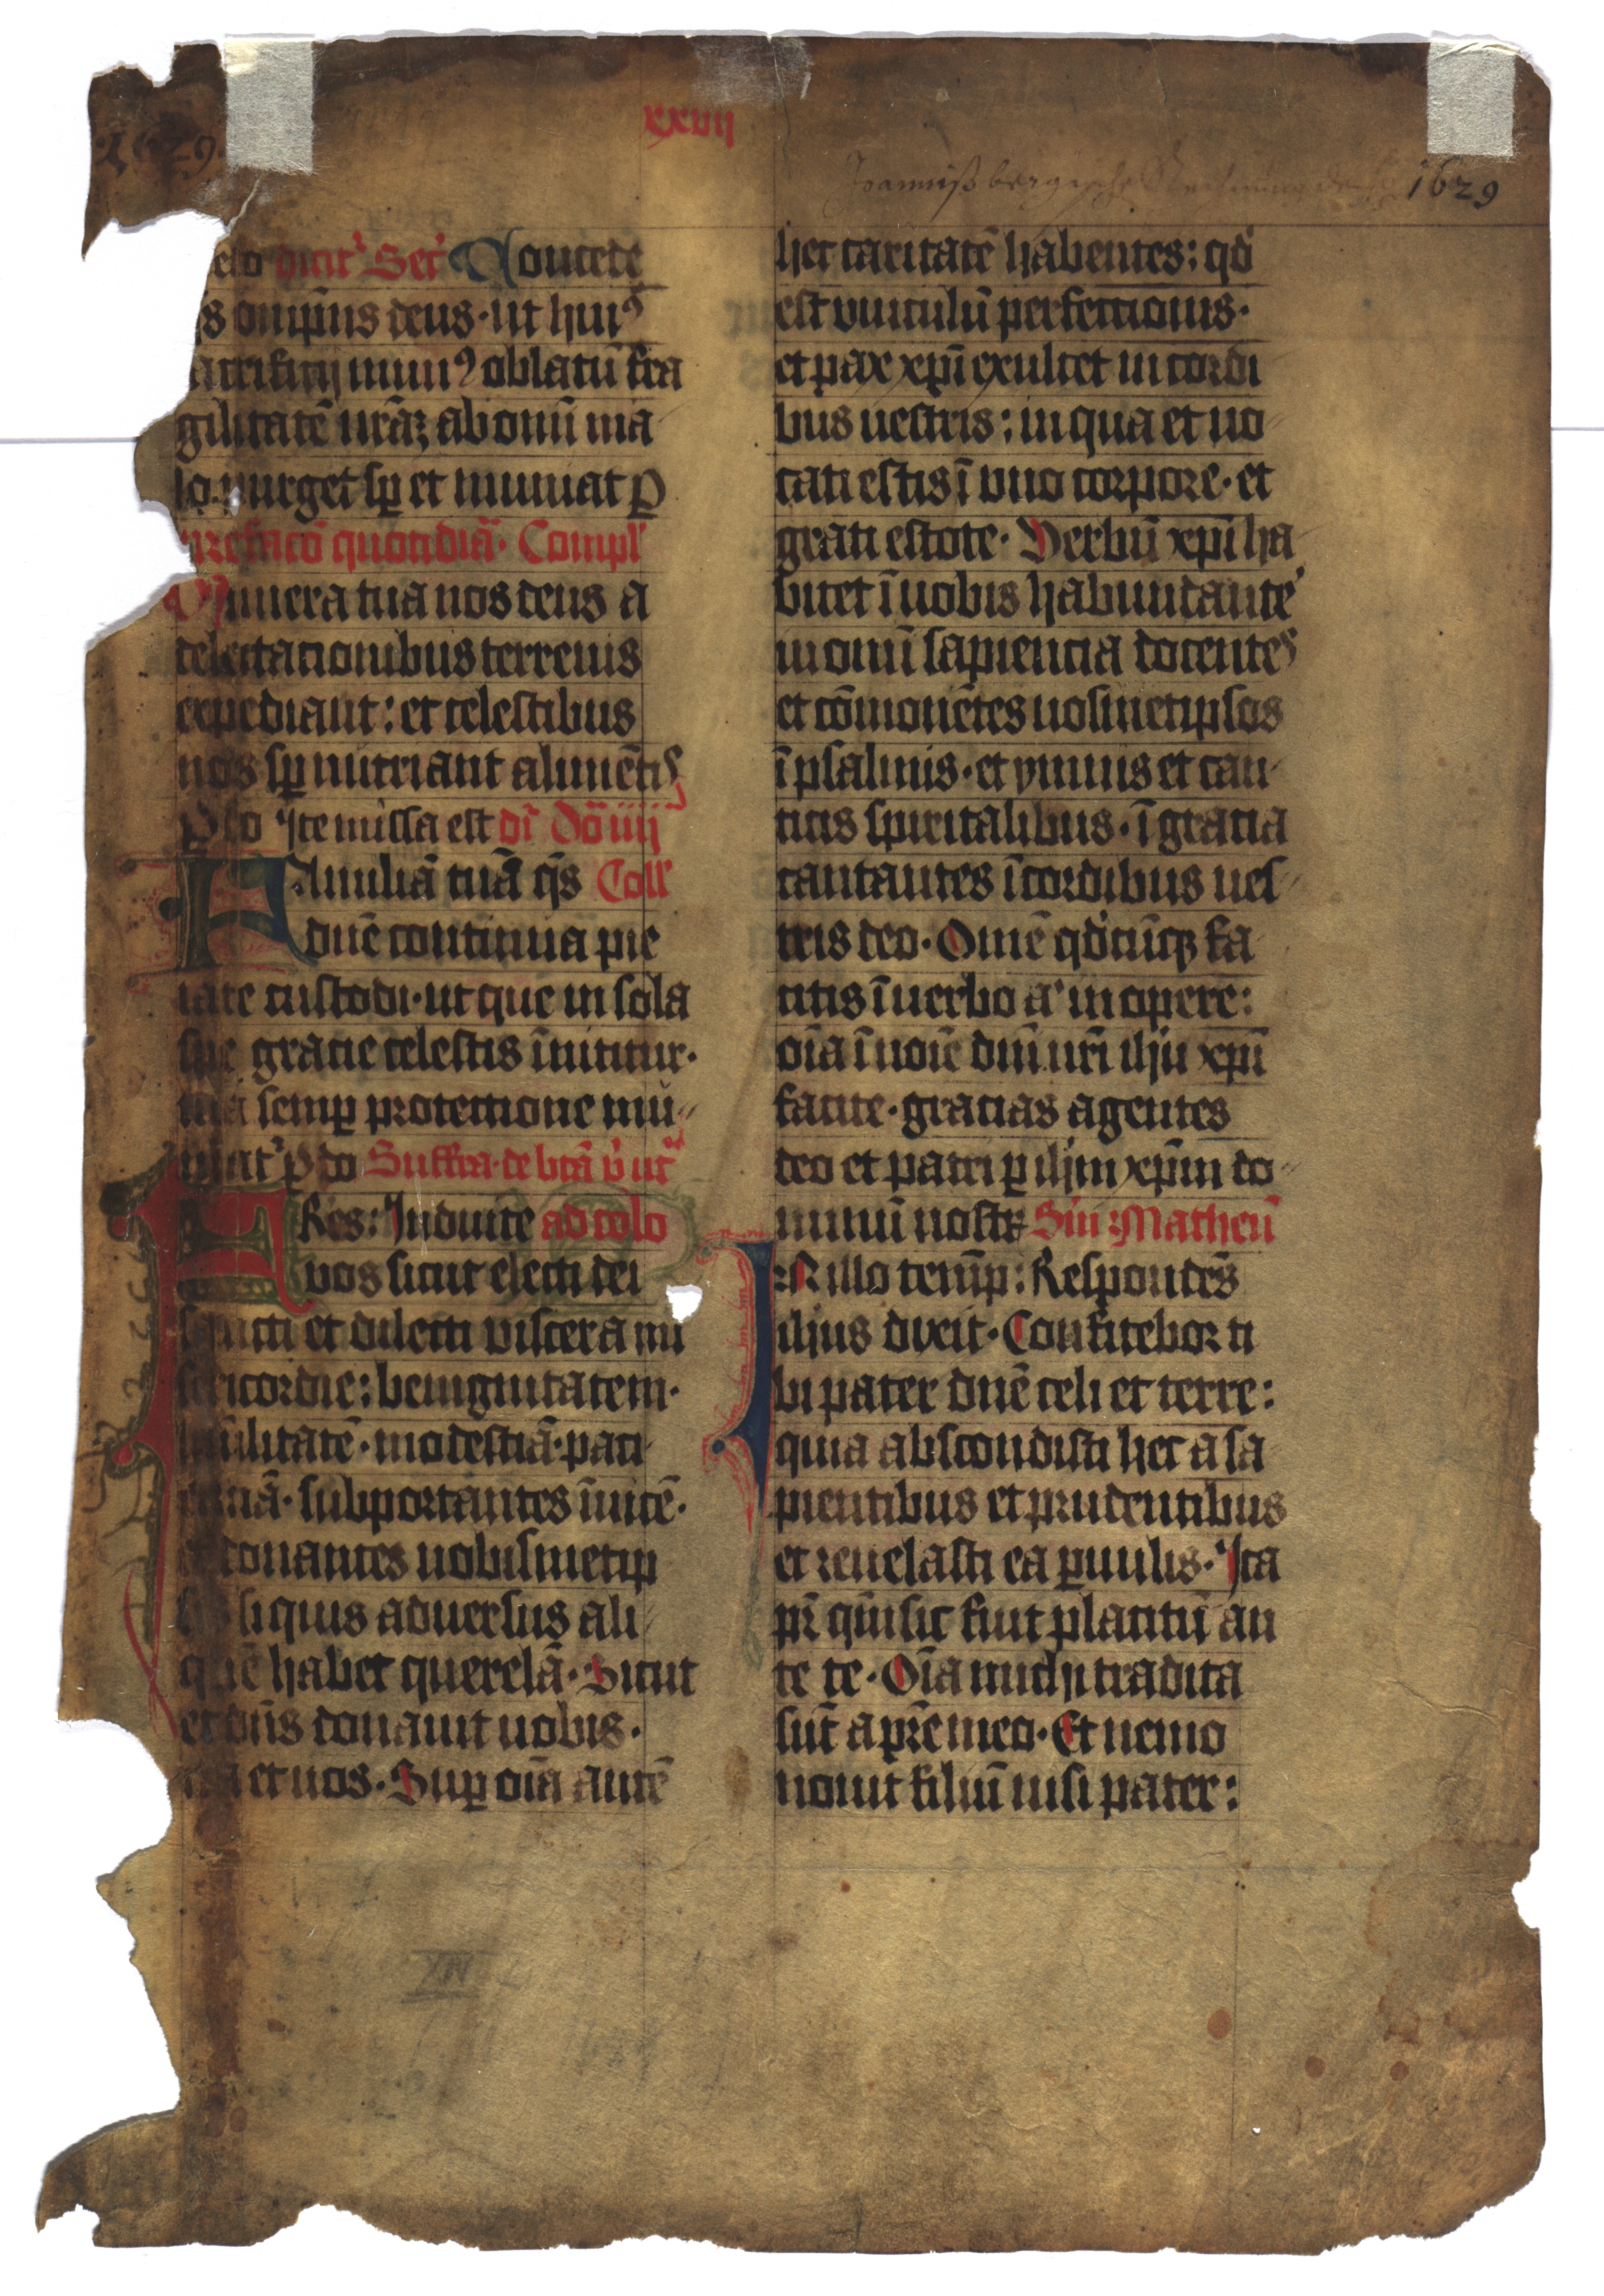 xxvij
1629
Joannißbergische Rechnung de 1629
celo dicit᷑ Secr̉ Concede
qs om̅ps deus · ut hui9
sacrificij mun9 oblatu̅ fra
gilitate̅ nr̅a̅ʒ ab omni̅ ma
lo purget sp̱ et muniat ꝑ
Prefaco̅ quotidia̅ · Compl̕
Munera tua nos deus a
delectationibus terrenis
expediant : et celestibus
nos sp̱ nutriant alime̅tis
ꝑ do Ite missa est di̅ Do̅ iiij
FAmilia̅ tua̅ qs̅ Coll̕
dn̅e continua pie
tate custodi · ut que in sola
spe gratie celestis i̅nititur ·
tua semꝑ protectione mu
niat᷑ ꝑ do Suffra · de bt̅a v̕ ut᷑
FRes : Induite ad colo
vos sicut electi dei
sancti et dilecti viscera mi
sericordie : benignitatem ·
humilitate̅ · modestia̅ · paci
encia̅ · subportantes i̅uice̅ ·
et donantes uobismetip
sis si quis aduersus ali
que̅ habet querela̅ · Sicut
et dn̅s donauit uobis ·
ita et uos · Suꝑ oi̅a aute̅
hec caritate̅ habentes : qd̕
est vinculu̅ perfectionis ·
et pax xp̅i exultet in cordi
bus uestris : in qua et uo
cati estis i̅ vno corpore · et
grati estote · Verbu̅ xp̅i ha
bitet i̅ uobis habundante̕
in omni̅ sapiencia docentes
et co̅mone̅tes uosmetipsos
i̅ psalmis · et ymnis et can
ticis spiritalibus · i̅ gratia
cantantes i̅ cordibus ues
tris deo · Om̅e qd̕cu̅qʒ fa
citis i̅ uerbo a̕ in opere :
oi̅a i̅ noi̅e dn̅i nr̅i ihu xp̅i
facite · gracias agentes
deo et patri ꝑ ihm xp̅m do
minu̅ nostꝝ Sm̅ : Matheu̅
IN illo temp̅ : Responde̅s
ihus dixit · Confitebor ti
bi pater dn̅e celi et terre :
quia abscondisti hec a sa
pientibus et prudentibus
et reuelasti ea ꝑuulis · Ita
pr̅ qm̅ sic fuit placitu̅ an
te te · Oi̅a michi tradita
su̅t a pr̅e meo · Et nemo
nouit filiu̅ nisi pater :